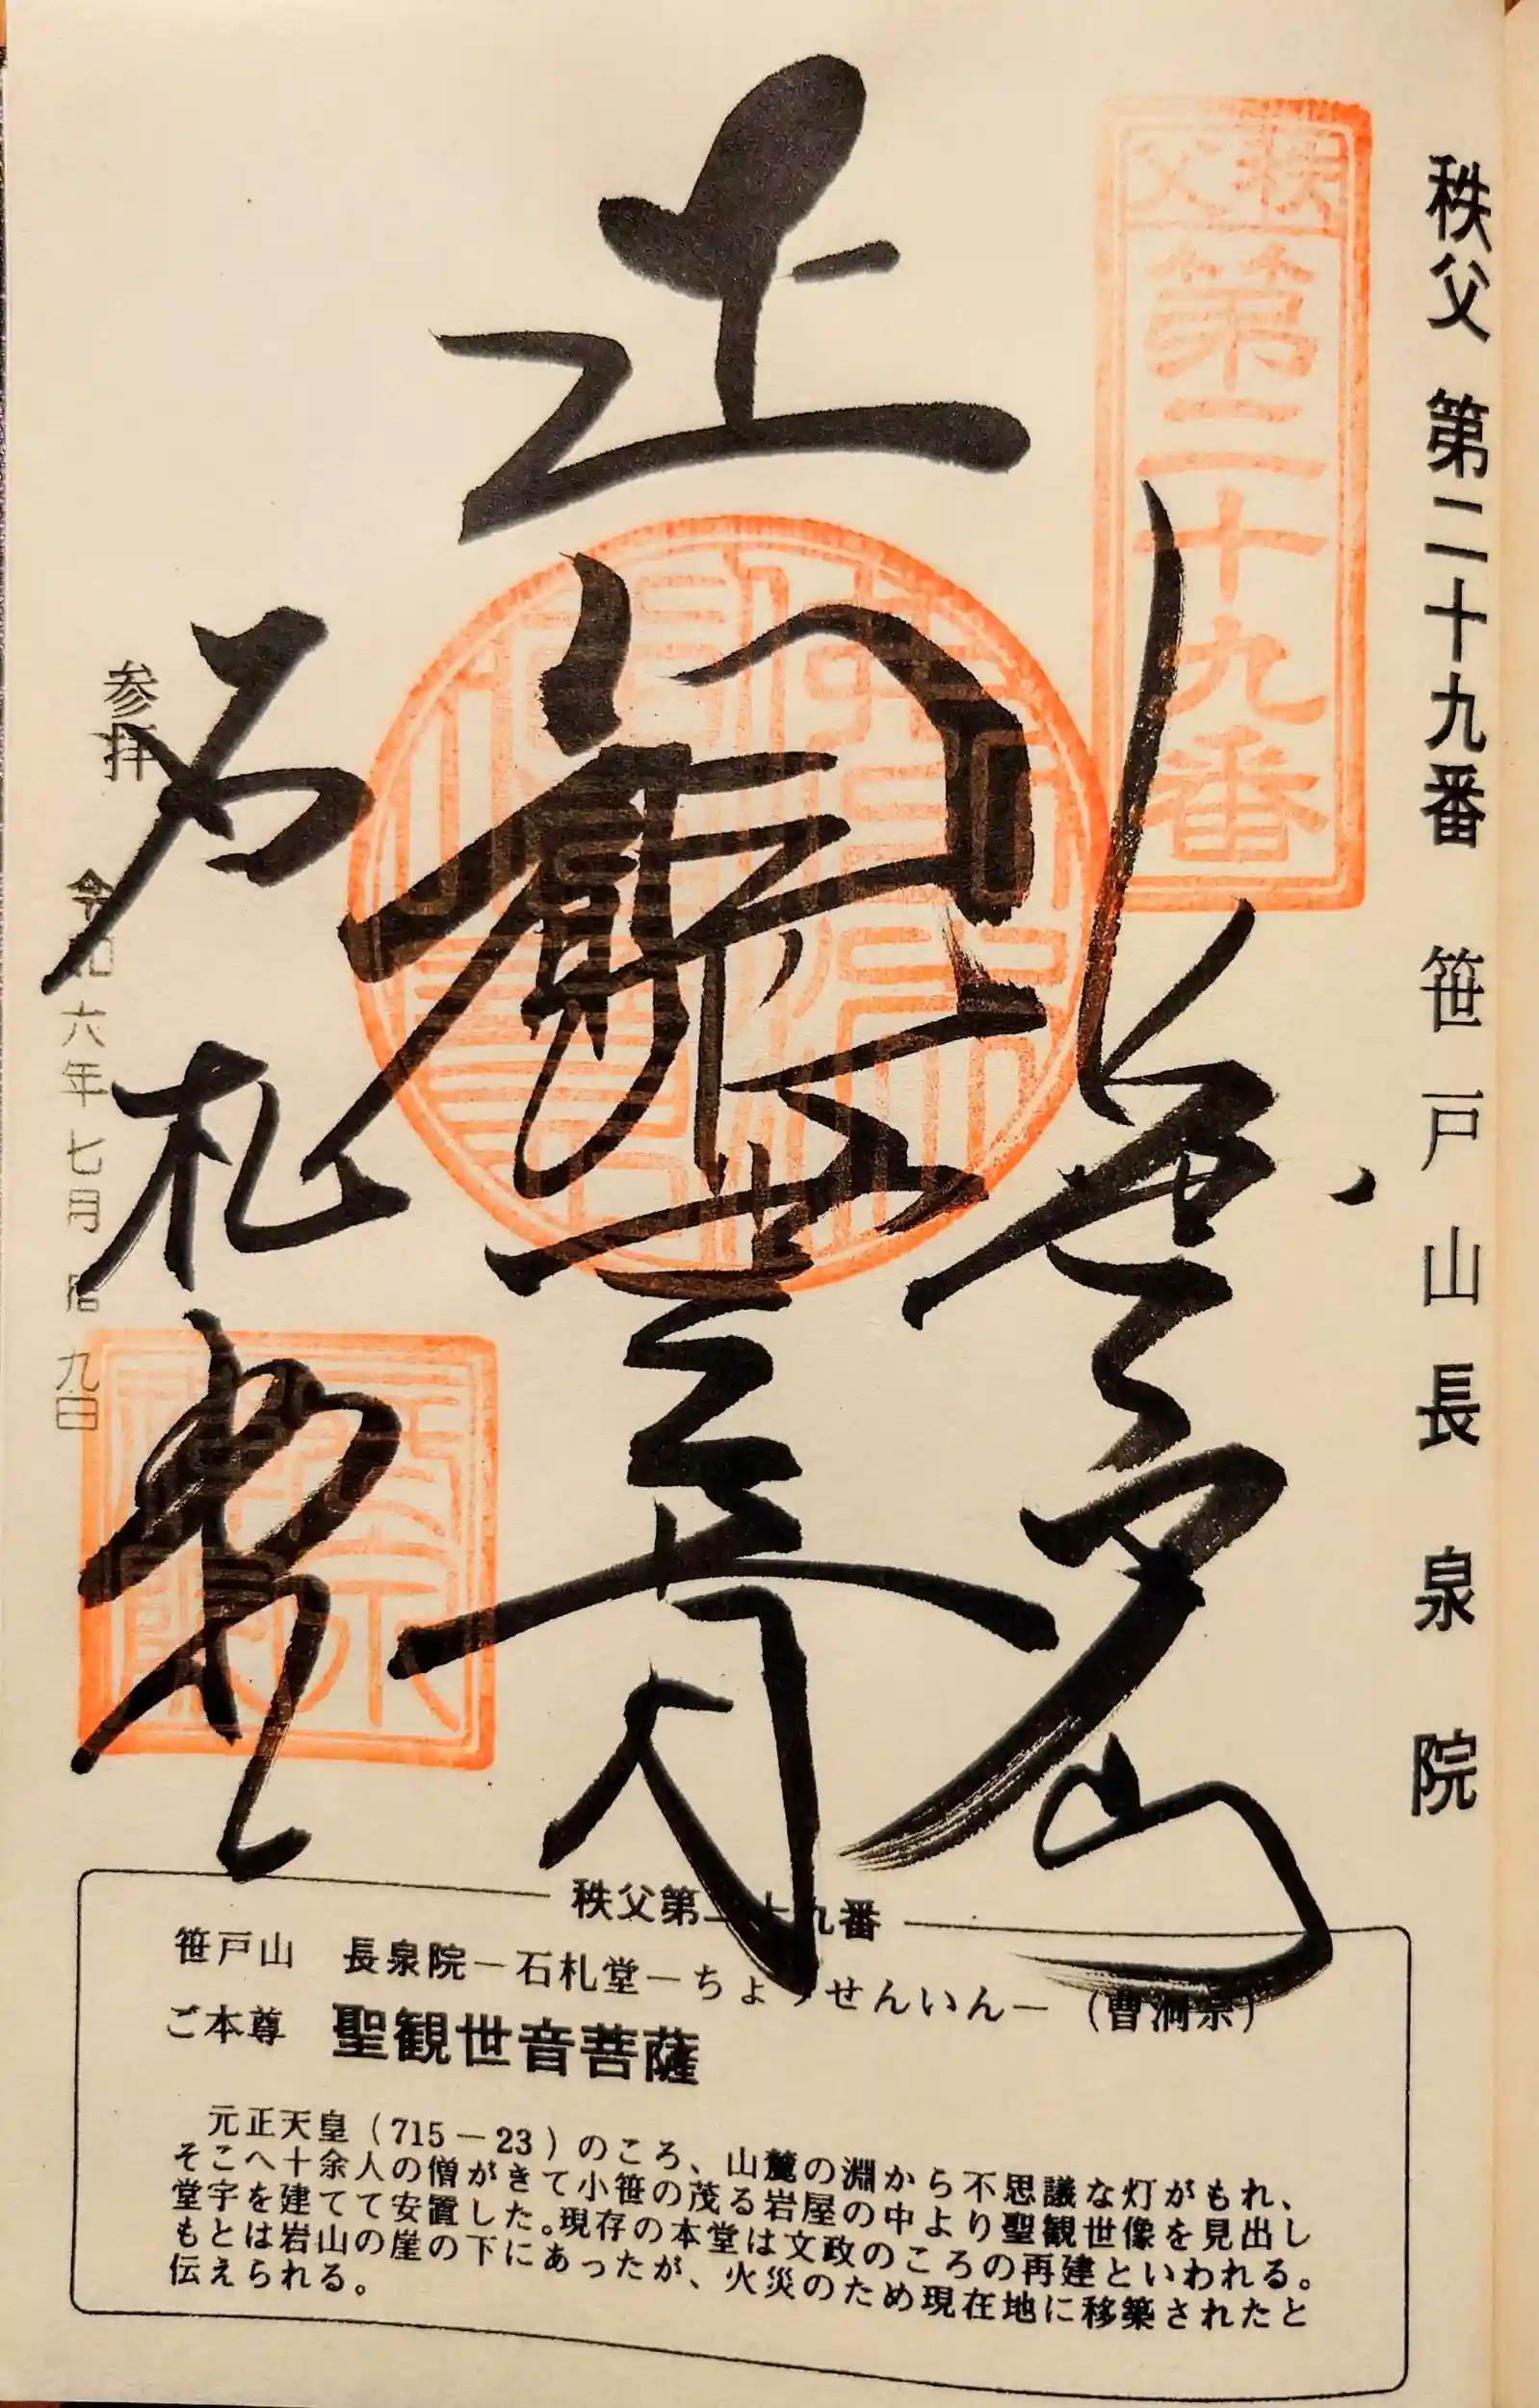 秩父 第二十九番 笹戸山 長泉院
秩父
第二十九番
正観世音
石札堂
参拝
令和六年七月 九日
秩父第二十九番
笹戸山 長泉院―石札堂―ちょうせんいん―(曹洞宗)
ご本尊 聖観世音菩薩
元正天皇(715―23)のころ、山麓の淵から不思議な灯がもれ、
そこへ十余人の僧がきて小笹の茂る岩屋の中より聖観世像を見出し
堂宇を建てて安置した。現存の本堂は文政のころの再建といわれる。
もとは岩山の崖の下にあったが、火災のため現在地に移築されたと
伝えられる。